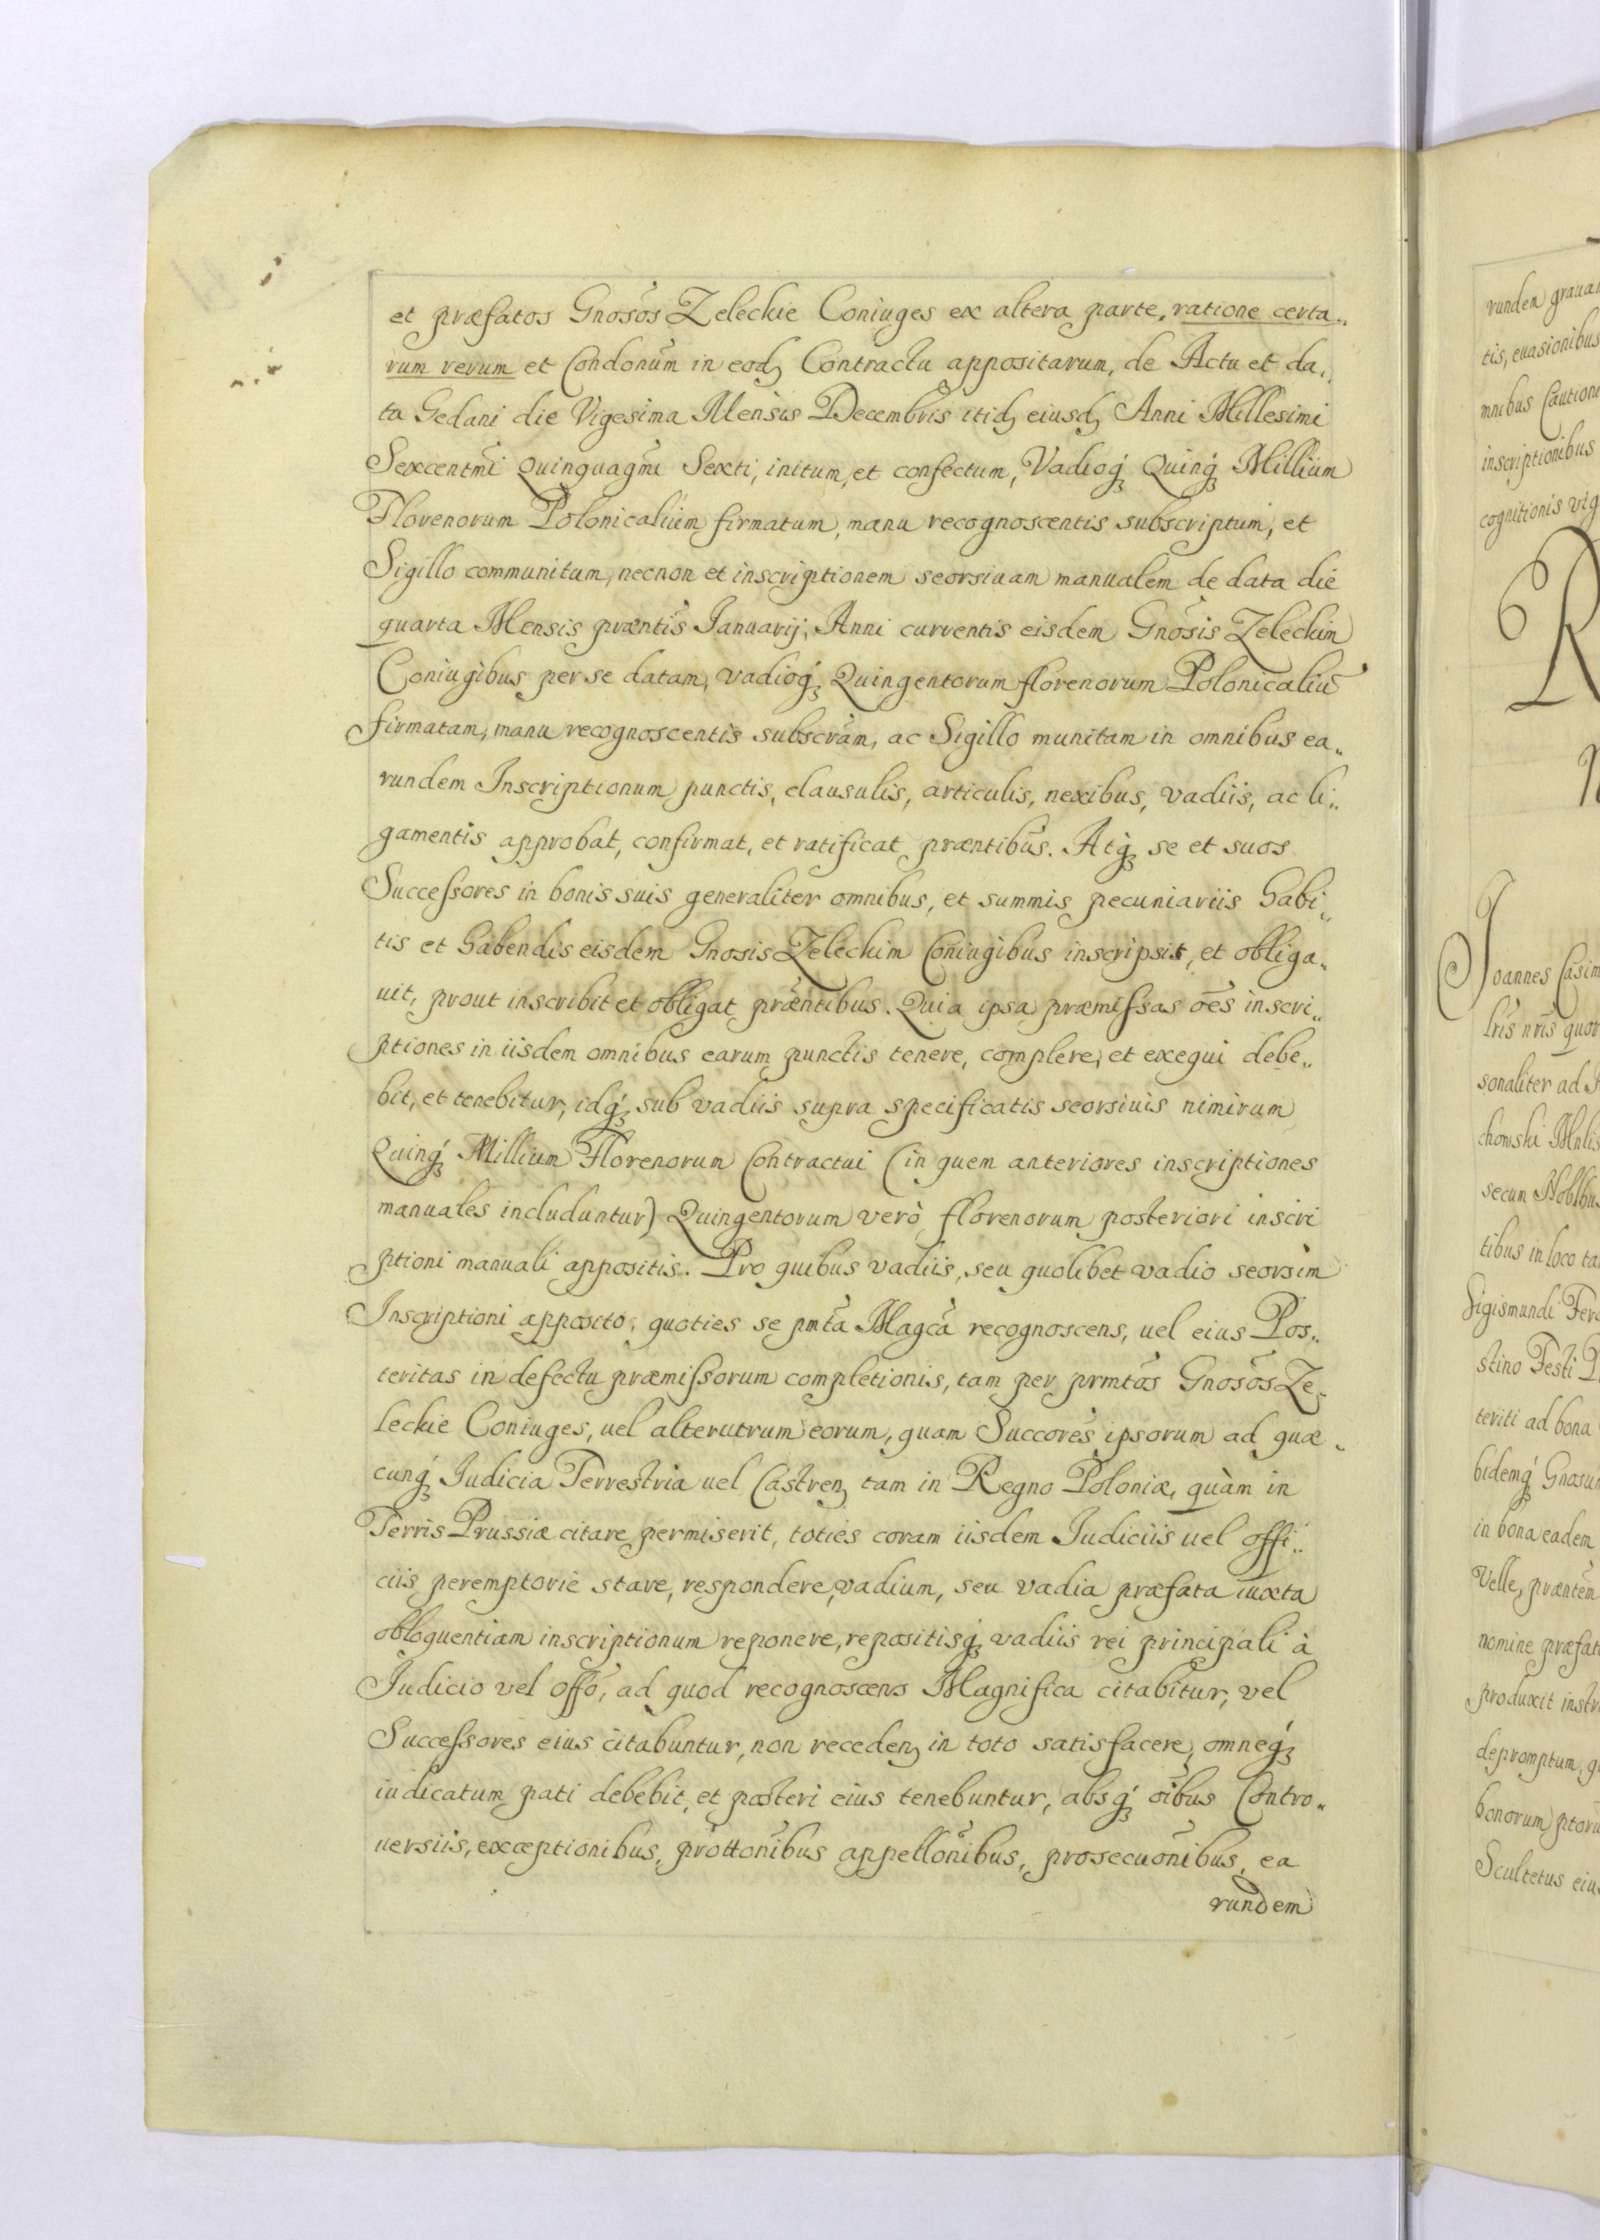 et præfatos Gnosos Zeleckie Coniuges ex altera parte, ratione certa„
rum rerum et Condonum in eod Contractu appositarum, de Actu et da„
ta Gedani die Vigesima Mensis Decembris itid eiusd Anni Millesimi
Sexcentmi Quinquagmi Sexti, initum, et confectum, Vadioq Quinq Millium
Florenorum Polonicalium firmatum, manu recognoscentis subscriptum, et
Sigillo communitum, necnon et inscriptionem seorsiuam manualem de data die
quarta Mensis præntis Ianuarij, Anni currentis eisdem Gnosis Zeleckim
Coniugibus per se datam, vadioq Quingentorum florenorum Polonicaliū
firmatam, manu recognoscentis subscram, ac Sigillo munitam in omnibus ea„
rundem Inscriptionum punctis, clausulis, articulis, nexibus, vadiis, ac li„
gamentis approbat, confirmat, et ratificat præntibus. Atq se et suos
Successores in bonis suis generaliter omnibus, et summis pecuniariis habi„
tis et habendis eisdem Gnosis Zeleckim Coniugibus inscripsit, et obliga„
uit, prout inscribit et obligat præntibus. Quia ipsa præmissas oēs inscri„
ptiones in iisdem omnibus earum punctis tenere, complere, et exequi debe„
bit, et tenebitur, idq sub vadiis supra specificatis seorsiuis nimirum
Quinq Millium Florenorum Contractui (in quem anteriores inscriptiones
manuales includuntur) Quingentorum verò florenorum posteriori inscri
ptioni manuali appositis. Pro quibus vadiis, seu quolibet vadio seorsim
Inscriptioni apposito, quoties se pmta Magca recognoscens, uel eius Pos„
teritas in defectu præmissorum completionis, tam per prmtos Gnosos Ze„
leckie Coniuges, uel alterutrum eorum, quam Succores ipsorum ad quæ„
cunq Iudicia Terrestria uel Castren tam in Regno Poloniæ, quàm in
Terris Prussiæ citare permiserit, toties coram iisdem Iudiciis uel offi„
ciis peremptorie stare, respondere, vadium, seu vadia præfata iuxta
obloquentiam inscriptionum reponere, repositisq vadiis rei principali à
Iudicio vel offo, ad quod recognoscens Magnifica citabitur, vel
Successores eius citabuntur, non receden in toto satisfacere, omneq
iudicatum pati debebit, et posteri eius tenebuntur, absq oībus Contro„
uersiis, exceptionibus, prottonibus appellonibus, prosecuonibus, ea
rundem
runden
tis, euasionibus
mnibus Caution
inscriptionibus
cognitionis vig
R
Joannes Casim
lris nris quor
sonaliter ad
chowski
secum
tibus in loco ta
Sigismundi Fer
stino Festi
teriti ad bona
bidemq Gnosu
in bona eadem
Velle, præntem
nomine præfat
produxit instr
depromptum,
bonorum ptoru
Scultetus eiu